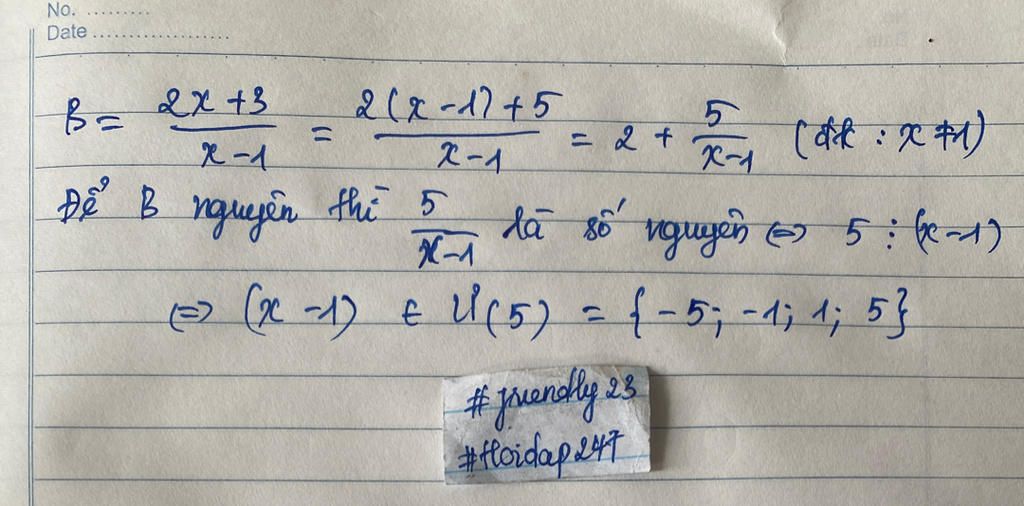 No. .........
Date ...................
B = (2x + 3)/(x - 1) = (2(x - 1) + 5)/(x - 1) = 2 + 5/(x - 1) (đk : x ≠ 1)
Để B nguyên thì 5/(x - 1) là số nguyên <=> 5 ⋮ (x - 1)
<=> (x - 1) ∈ Ư(5) = {-5; -1; 1; 5}
# friendly 23
#Hoidap247